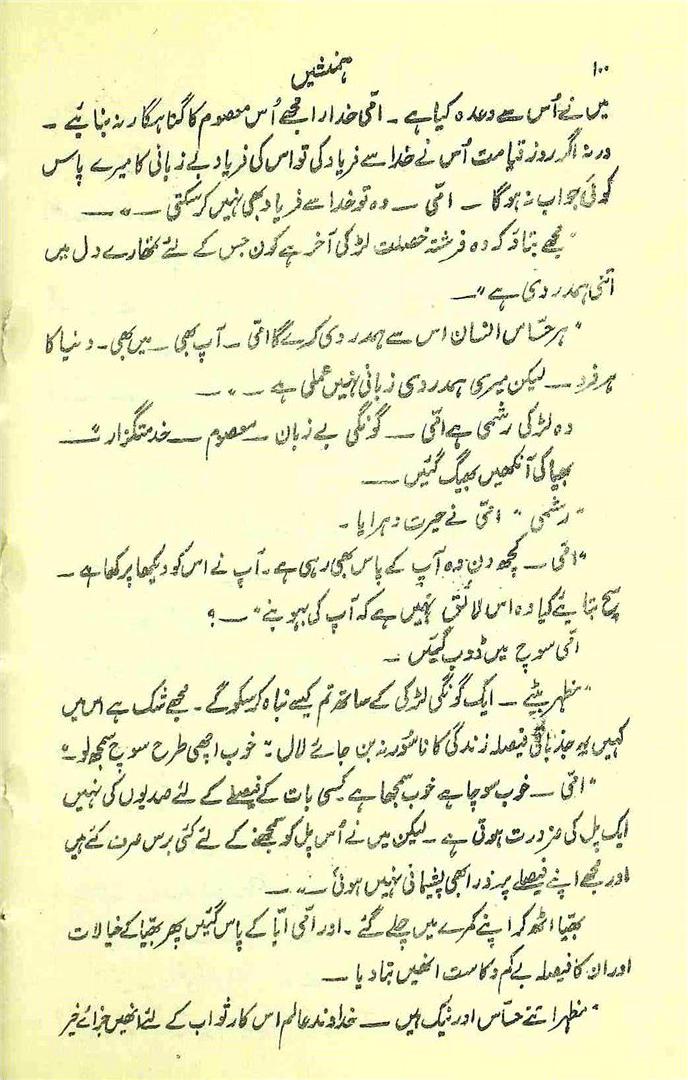 ۱۰۰ ہمنشیں
میں نے اُس سے وعدہ کیا ہے ۔ امّی خدارا مجھے اُس معصوم کا گناہگار نہ بنائیے ۔
ورنہ اگر روزِ قیامت اُس نے خدا سے فریاد کی تو اس کی فریادِ بے زبانی کا میرے پاس
کوئی جواب نہ ہوگا ۔ امّی ۔ وہ تو خدا سے فریاد بھی نہیں کر سکتی ۔"۔
"مجھے بتاؤ کہ وہ فرشتہ خصلت لڑکی آخر ہے کون جس کے لئے تمھارے دل میں
اتنی ہمدردی ہے"۔
"ہر حسّاس انسان اس سے ہمدردی کرے گا امّی ۔ آپ بھی ۔ میں بھی ۔ دنیا کا
ہر فرد ۔ لیکن میری ہمدردی زبانی نہیں عملی ہے ۔"۔
وہ لڑکی رشمی ہے امّی ۔ گونگی بے زبان ۔ معصوم ۔ خدمتگزار"۔
بھیا کی آنکھیں بھیگ گئیں ۔
"رشمی" امّی نے حیرت دہرایا ۔
"امّی ۔ کچھ دن وہ آپ کے پاس بھی رہی ہے ۔ آپ نے اس کو دیکھا پرکھا ہے ۔
سچ بتائیے کیا وہ اس لائق نہیں ہے کہ آپ کی بہو بنے"۔ ؟
امّی سوچ میں ڈوب گئیں ۔
"مظہر بیٹے ۔ ایک گونگی لڑکی کے ساتھ تم کیسے نباہ کر سکو گے ۔ مجھے شک ہے اس میں
کہیں یہ جذباتی فیصلہ زندگی کا ناسور نہ بن جائے لال ۔ خوب اچھی طرح سوچ سمجھ لو ۔"
"امّی ۔ خوب سوچا ہے خوب سمجھا ہے ۔ کسی بات کے فیصلے کے لئے صدیوں کی نہیں
ایک پل کی ضرورت ہوتی ہے ۔ لیکن میں نے اُس پل کو سمجھنے کے لئے کئی برس صرف کئے ہیں
اور مجھے اپنے فیصلے پر ذرا بھی پشیمانی نہیں ہوئی ۔"۔
بھیّا اٹھ کر اپنے کمرے میں چلے گئے ۔ اور امّی ابّا کے پاس گئیں پھر بھیّا کے خیالات
اور ان کا فیصلہ بے کم و کاست انھیں بتا دیا ۔
"مظہر اتنے حسّاس اور نیک ہیں ۔ خداوند عالم اس کار ثواب کے لئے انھیں جزائے خیر